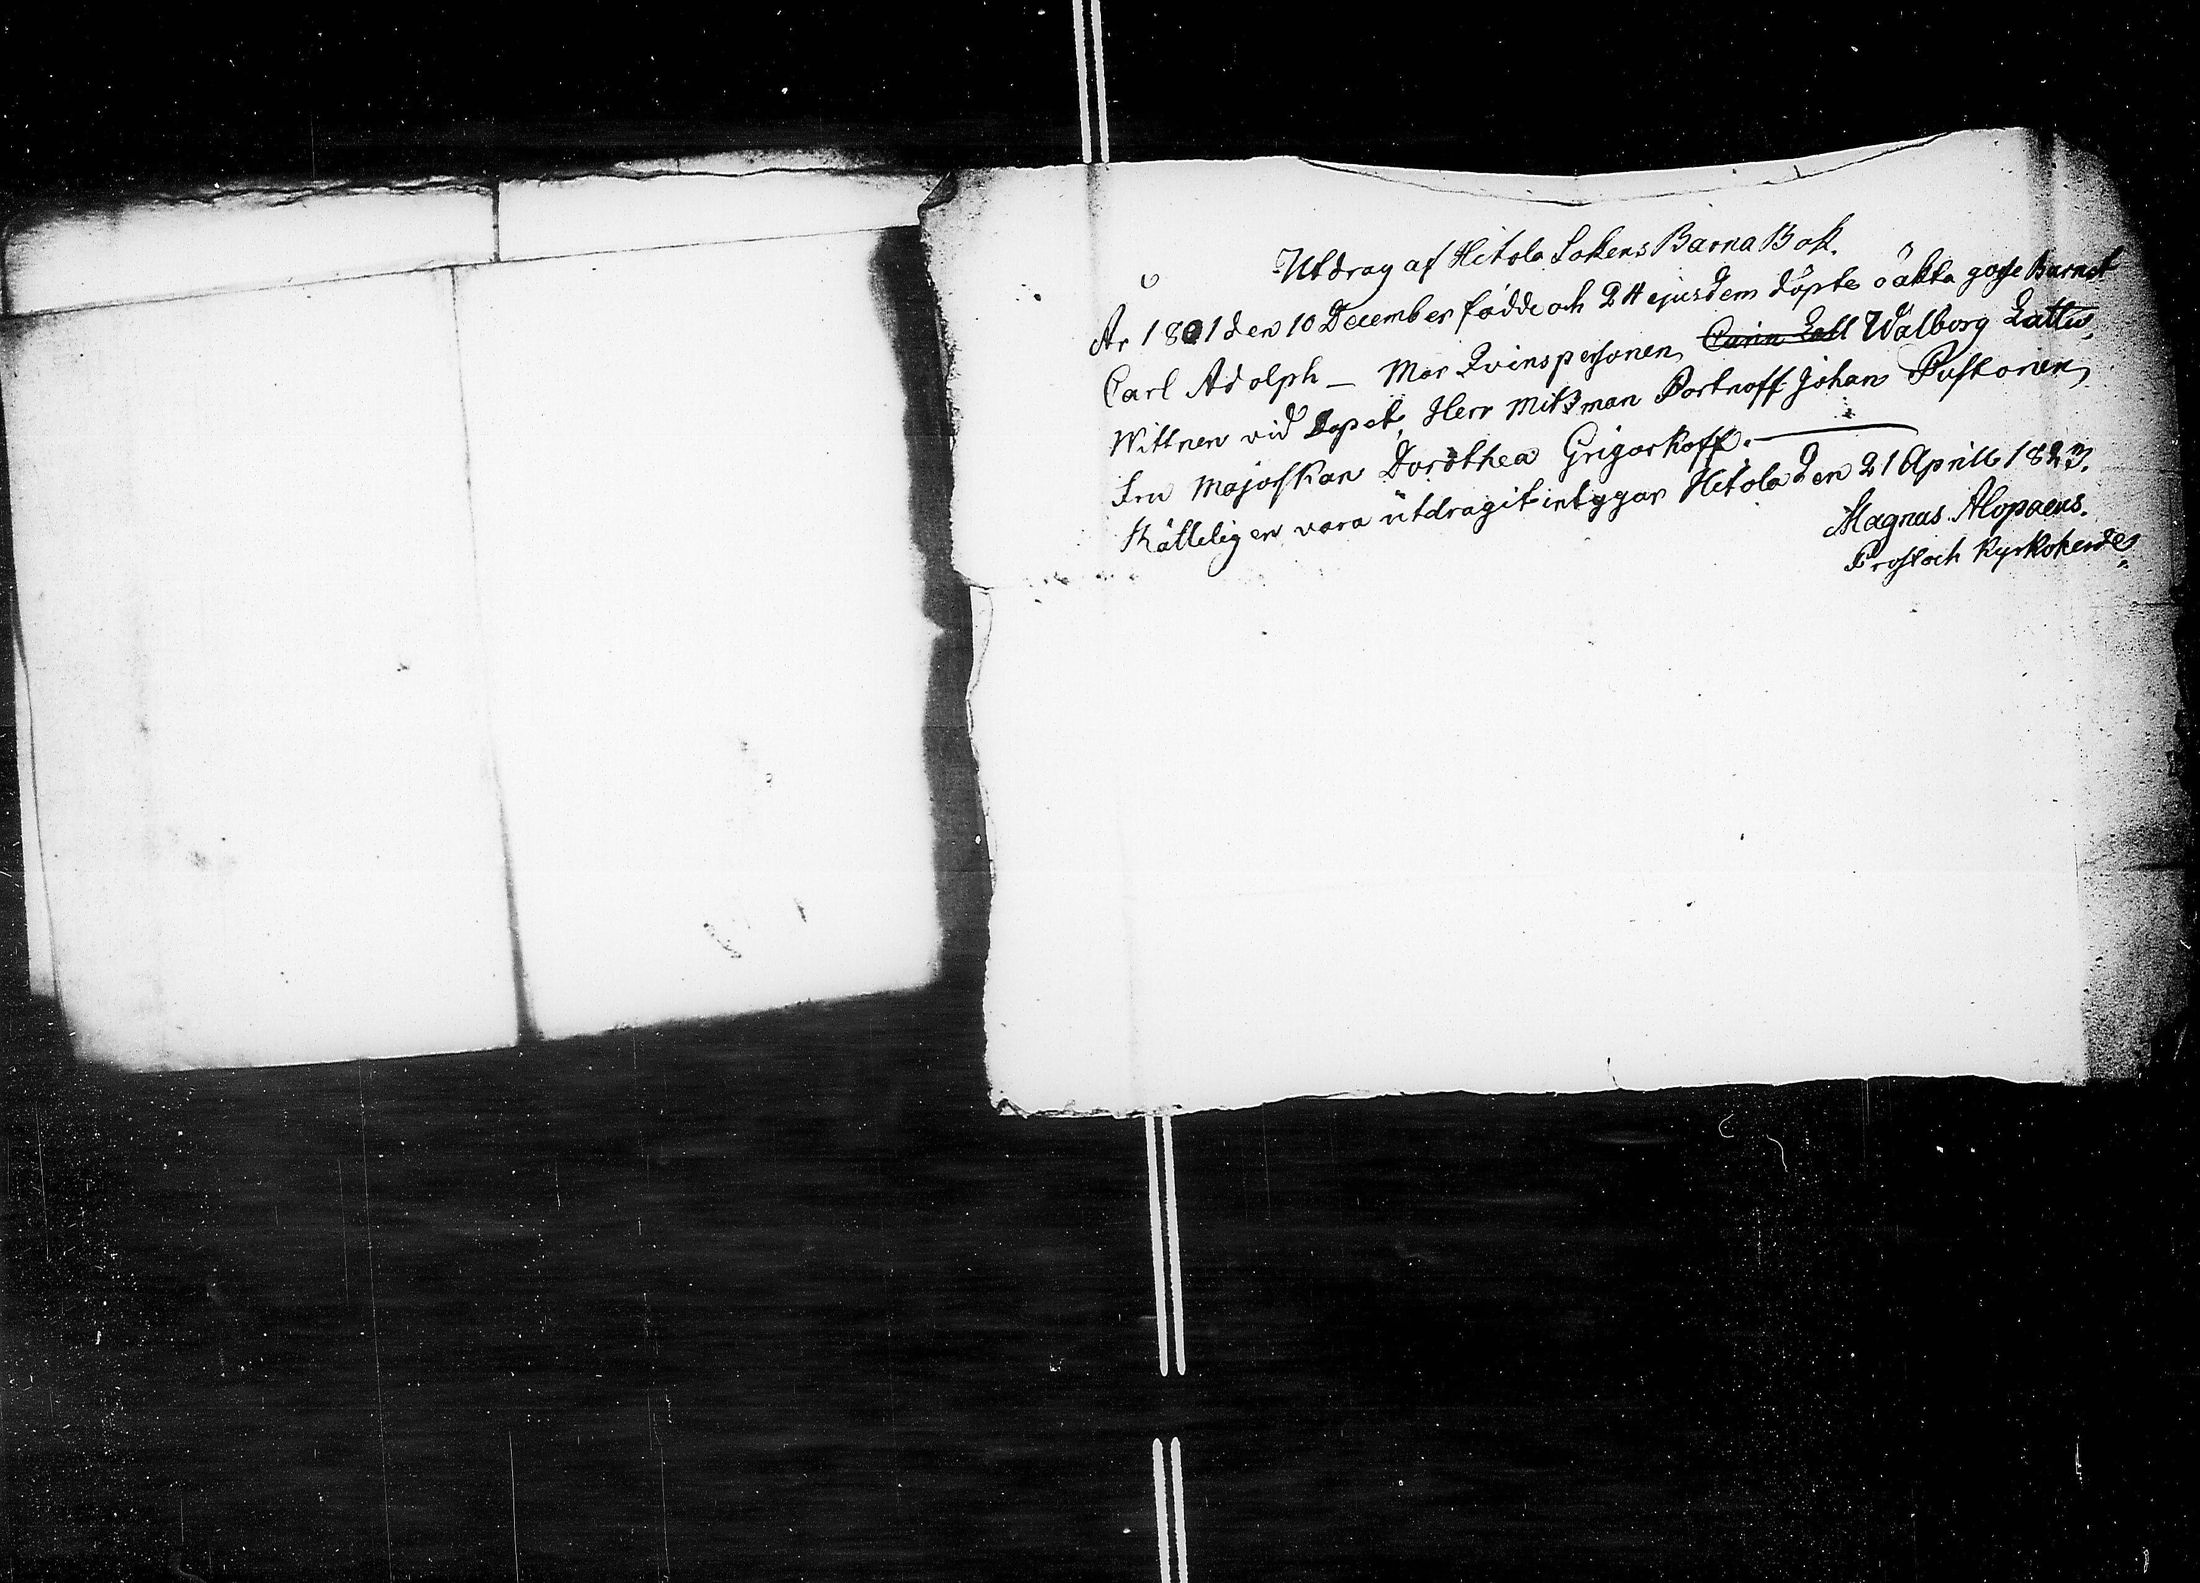 Utdrag af Hitola Sokens Barna Bok.
År 1801 den 10 December födde och 24 ejusdem döpte oäkta gosse Barnet
Carl Adolph — Mor Qvinspersonen Walborg Lattu,
Wittnen vid Dopet, Herr Mitzman Portnoff Johan Pustonen,
Fru Majorskan Dorothea Grigorkoff. —
Rätteligen vara utdragit intygar Hitola den 21 Aprill 1823.
Magnus Alopaeus.
Prost och Kyrkoherde